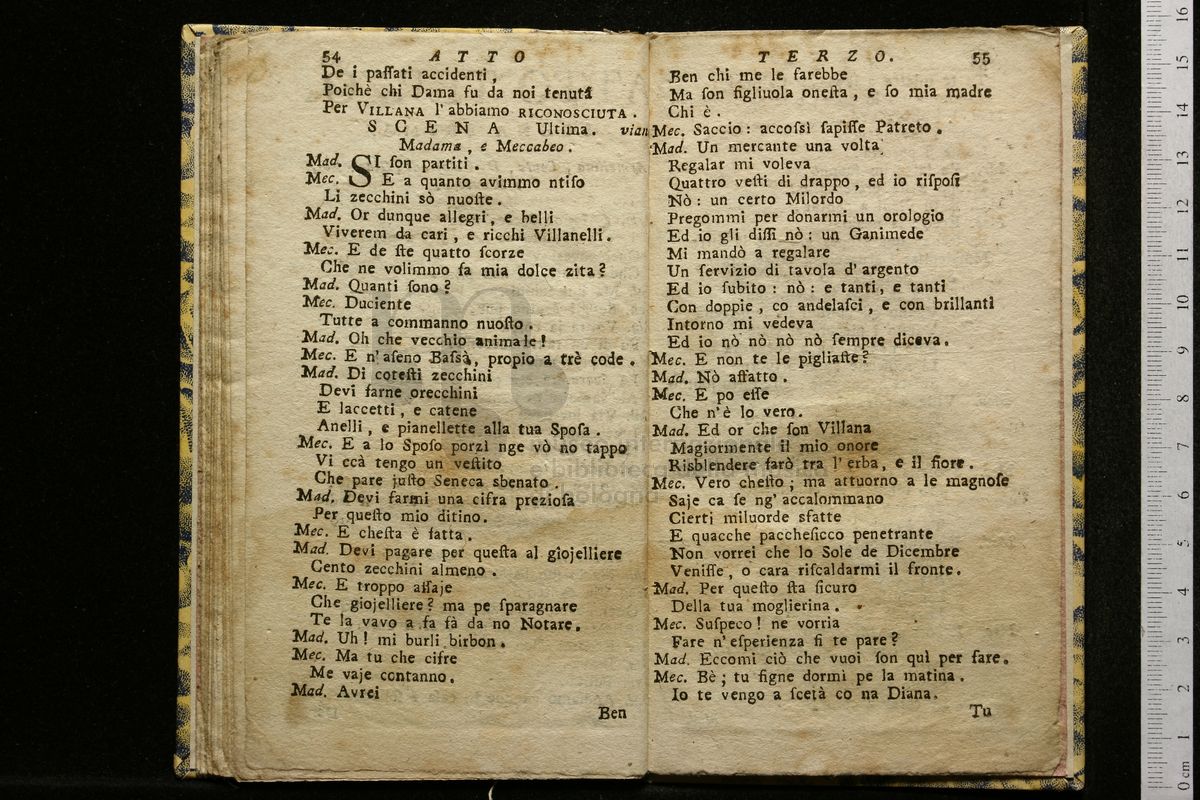 54 ATTO
De i paſſati accidenti,
Poichè chi Dama fu da noi tenuta
Per VILLANA l'abbiamo RICONOSCIUTA.
SCENA Ultima. vian
Madama, e Meccabeo.
Mad. SI ſon partiti.
Mec. E a quanto avimmo ntiſo
Li zecchini sò nuoſte.
Mad. Or dunque allegri, e belli
Viverem da cari, e ricchi Villanelli.
Mec. E de ſte quatto ſcorze
Che ne volimmo fa mia dolce zita?
Mad. Quanti ſono?
Mec. Duciente
Tutte a commanno nuoſto.
Mad. Oh che vecchio animale!
Mec. E n'aſeno Baſsà, propio a trè code.
Mad. Di coteſti zecchini
Devi farne orecchini
E laccetti, e catene
Anelli, e pianellette alla tua Spoſa.
Mec. E a lo Spoſo porzì nge vò no tappo
Vi ccà tengo un veſtito
Che pare juſto Seneca sbenato.
Mad. Devi farmi una cifra prezioſa
Per queſto mio ditino.
Mec. E cheſta è fatta.
Mad. Devi pagare per queſta al giojelliere
Cento zecchini almeno.
Mec. E troppo aſſaje
Che giojelliere? ma pe ſparagnare
Te la vavo a fa fà da no Notare.
Mad. Uh! mi burli birbon.
Mec. Ma tu che cifre
Me vaje contanno.
Mad. Avrei
Ben
TERZO. 55
Ben chi me le farebbe
Ma ſon figliuola oneſta, e ſo mia madre
Chi è.
Mec. Saccio: accoſsì ſapiſſe Patreto.
Mad. Un mercante una volta
Regalar mi voleva
Quattro veſti di drappo, ed io riſpoſi
Nò: un certo Milordo
Pregommi per donarmi un orologio
Ed io gli diſſi nò: un Ganimede
Mi mandò a regalare
Un ſervizio di tavola d'argento
Ed io ſubito: nò: e tanti, e tanti
Con doppie, co andelaſci, e con brillanti
Intorno mi vedeva
Ed io nò nò nò nò ſempre diceva.
Mec. E non te le pigliaſte?
Mad. Nò affatto.
Mec. E po eſſe
Che n'è lo vero.
Mad. Ed or che ſon Villana
Magiormente il mio onore
Risblendere farò tra l'erba, e il fiore.
Mec. Vero cheſto; ma attuorno a le magnoſe
Saje ca ſe ng'accalommano
Cierti miluorde sfatte
E quacche paccheſicco penetrante
Non vorrei che lo Sole de Dicembre
Veniſſe, o cara riſcaldarmi il fronte.
Mad. Per queſto ſta ſicuro
Della tua moglierina.
Mec. Suſpeco! ne vorria
Fare n'eſperienza ſi te pare?
Mad. Eccomi ciò che vuoi ſon quì per fare.
Mec. Bè; tu figne dormì pe la matina.
Io te vengo a ſcetà co na Diana.
Tu